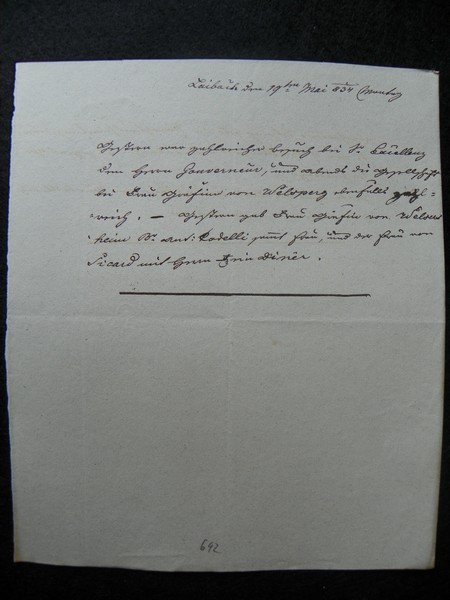 Laibach den 19ten Mai 834 Montag
Gestern war zahlreicher Besuch bei Sr Excellenz
dem Herrn Gouverneur, und Abends die Gesellschaft
bei Frau Gräfin von Welsperg ebenfalls zahl=
reich. — Gestern gab Frau Gräfin von Welsers
heim Br. Ant: Codelli sammt Frau, und der Frau von
Sicard mit Herrn ein Diner.
692